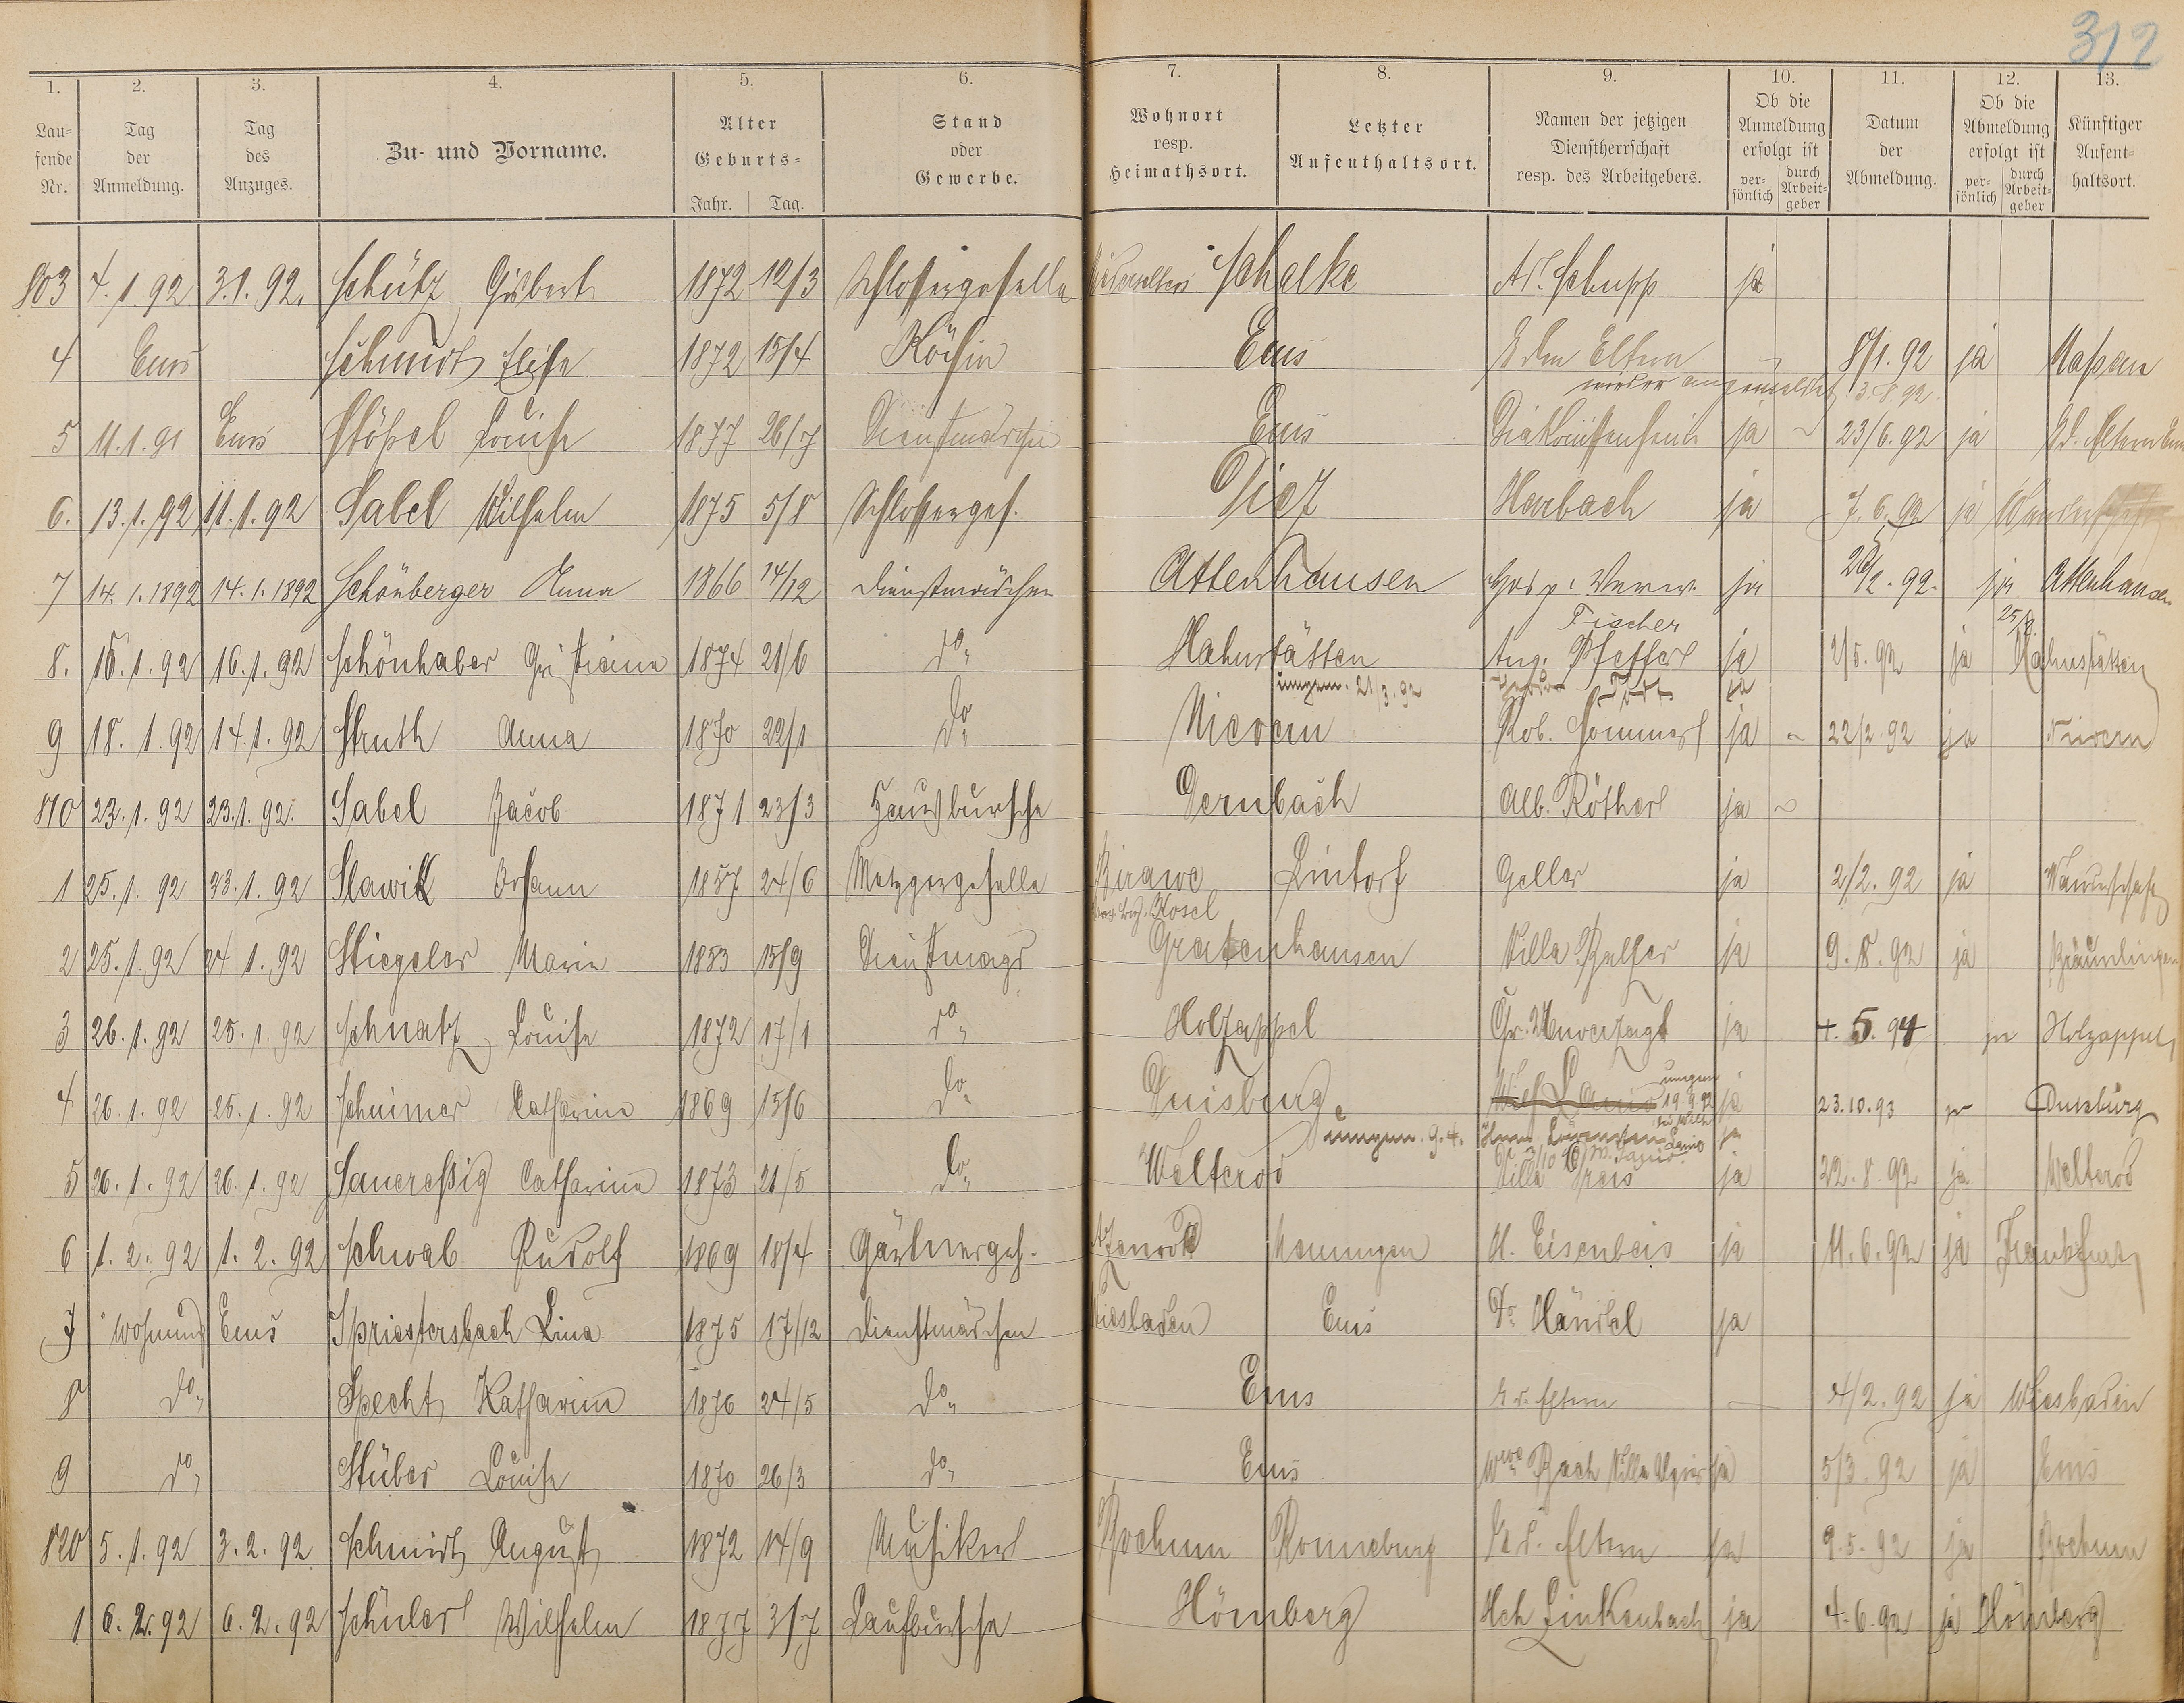 312
1. 2. 3. 4. 5. 6. 7. 8. 9. 10. 11. 12. 13.
Laufende Nr. Tag der Anmeldung. Tag des Anzuges. Zu- und Vorname. Alter Geburts= Jahr. Tag. Stand oder Gewerbe. Wohnort resp. Heimathsort. Letzter Aufenthaltsort. Namen der jetzigen Dienstherrschaft resp. des Arbeitgebers. Ob die Anmeldung erfolgt ist persönlich durch Arbeitgeber Datum der Abmeldung. Ob die Abmeldung erfolgt ist persönlich durch Arbeitgeber Künftiger Aufenthaltsort.
803 4.1.92 3.1.92. Schütz Gisbert 1872 12/3 Schlossergeselle Schalke Ad. Schupp ja
4 Ems Schmidt Elise 1872 15/4 Köchin Ems Z. den Eltern 8/1.92 ja Nassau
wieder angemeldet 3.8.92.
5 11.1.91 Ems Stößel Louise 1877 26/7 Dienstmädchen Ems ja 23/6.92 ja Z d. Eltern Ems
6. 13.1.92 11.1.92 Sabel Wilhelm 1875 5/8 Schlosserges. Diez Harbach ja 7.6.92 ja Wanderschaft
7 14.1.1892 14.1.1892 Schönberger Anna 1866 14/12 Dienstmädchen Attenhausen Hosp. Verw. ja 2.92. ja Attenhausen
Fischer 25/2.
8. 16.1.92 16.1.92 Schönhaber Christiane 1874 21/6 do Hahnstätten Aug. Pfeffer ja 2/5.92 ja Hahnstätten
umgem. 21/3.92 ja
9 18.1.92 14.1.92 Struth Anna 1870 22/1 do Nievern Rob. Sommer ja 22/2.92 ja Nievern
810 23.1.92 23.1.92. Sabel Jacob 1871 23/3 Hausbursche Dernbach Alb. Röther ja
1 25.1.92 23.1.92 Slawik Johann 1857 24/6 Metzgergeselle Birawe Lintorf Geller ja 2/2.92 ja Wanderschaft
Kosel
2 25.1.92 24.1.92 Stiegeler Marie 1853 15/9 Dienstmagd Grafenhausen Villa Balzer ja 9.8.92 ja Bräunlingen
3 26.1.92 25.1.92 Schnatz Louise 1872 17/1 do Holzappel Chr. Unverzagt ja 4.5.94 ja Holzappel
4 26.1.92 25.1.92 Schuimer Catharine 1869 15/6 do Duisburg umgem 19.9.92 ja 23.10.93 Duisburg
umgem. 9.4. ja
5 26.1.92 26.1.92 Saueressig Catharine 1873 21/5 do Welterod Villa Preis ja 22.8.92 ja Welterod
6 1.2.92 1.2.92 Schwab Rudolf 1869 18/4 Gärtnergeh. H. Eisenbeis ja 11.6.92 ja Frankfurt
7 Wohnung Ems Spriestersbach Lina 1875 17/12 Dienstmädchen Wiesbaden Ems Dr Händel ja
8 do Specht Katharine 1876 24/5 do Ems Z d. Eltern 4/2.92 ja Wiesbaden
9 do Stüber Louise 1870 26/3 do Ems Wwe Bach Villa ja 5/3.92 ja Ems
820 5.1.92 3.2.92 Schmidt August 1872 14/9 Musiker Bochum Ronneburg Z d. Eltern ja 9.5.92 ja Bochum
1 6.2.92 6.2.92 Schüler Wilhelm 1877 3/7 Laufbursche Hömberg Hch Linkenbach ja 4.6.92 ja Hömberg